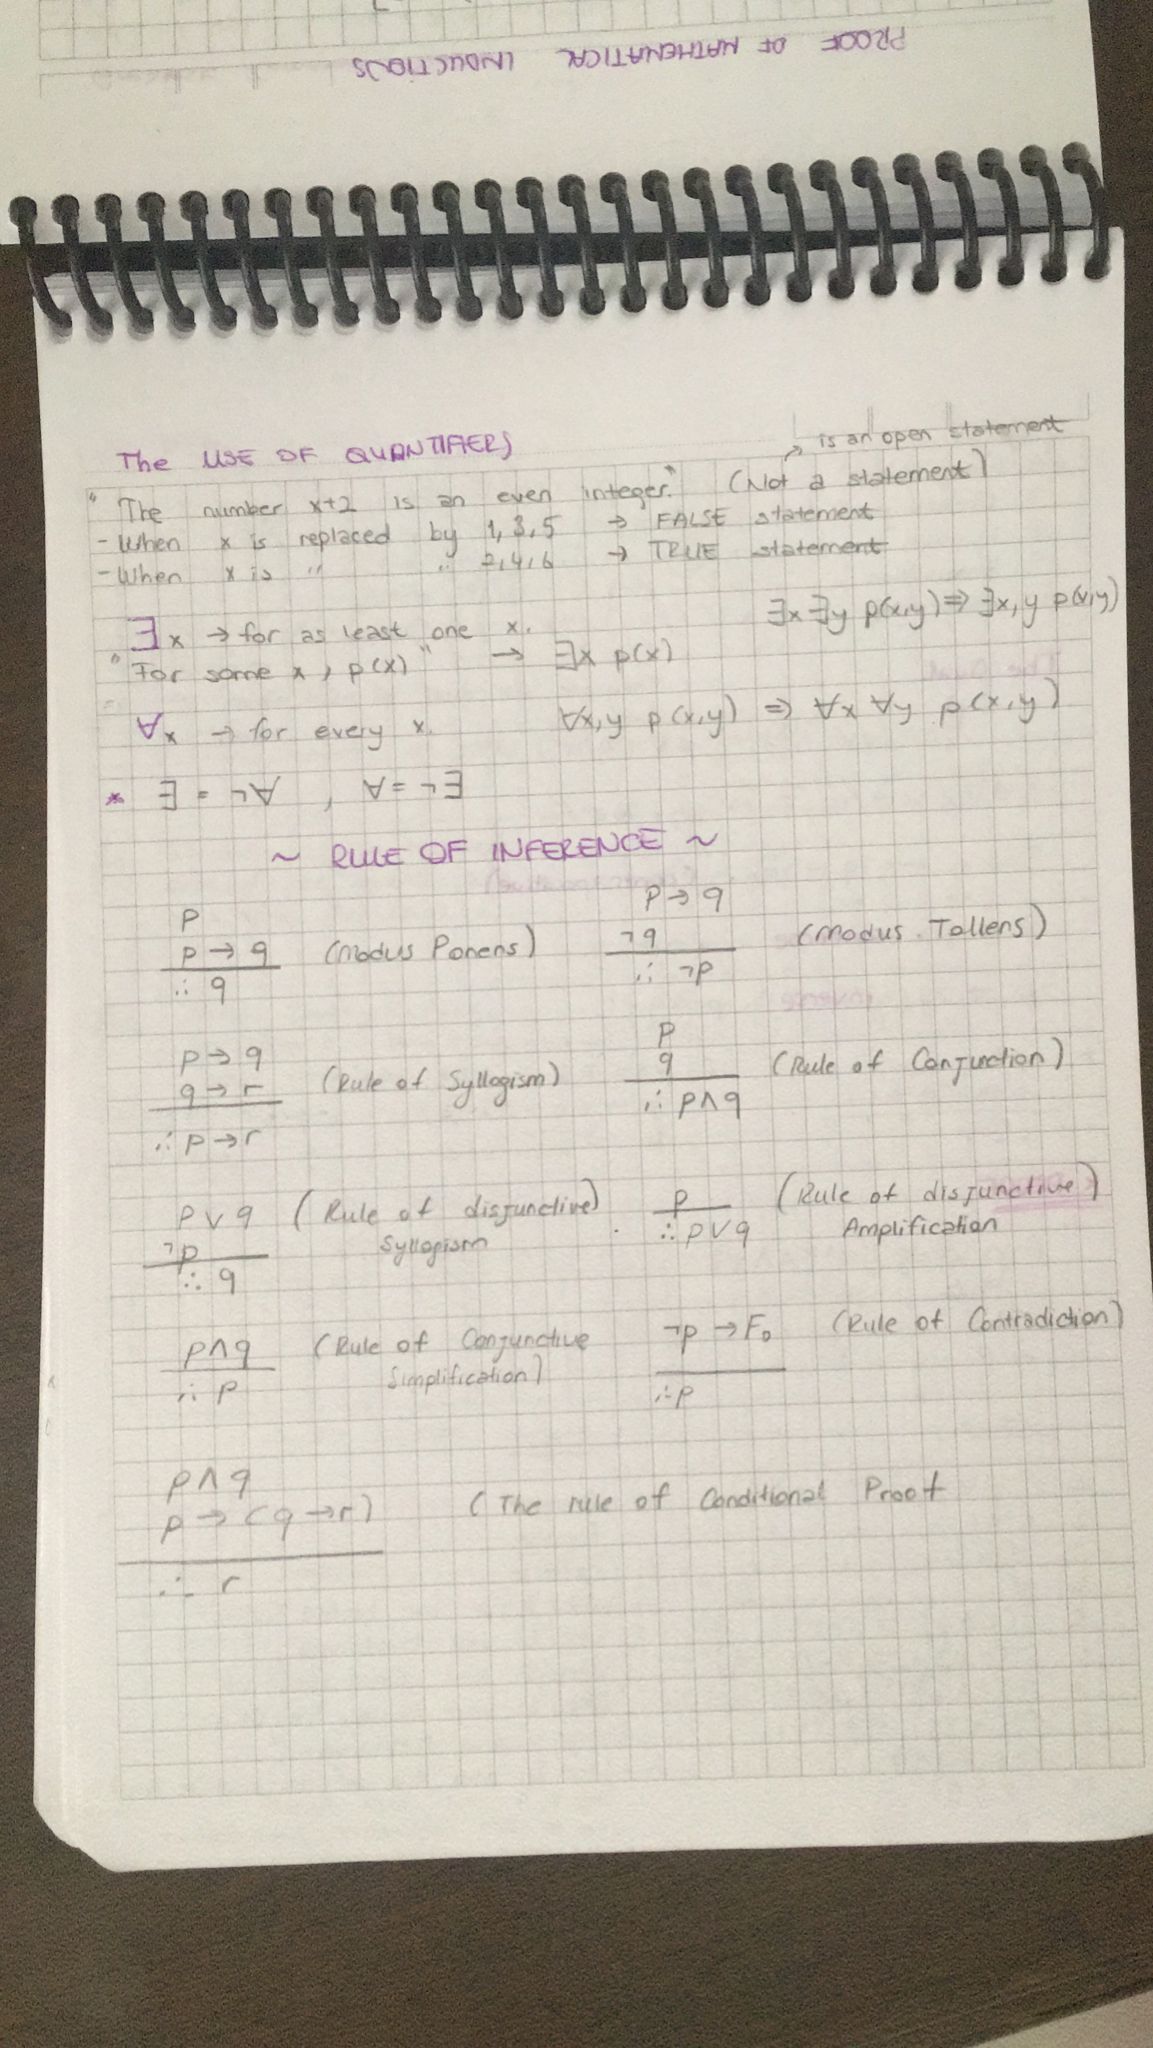 PROOF OF MATHEMATICAL INDUCTIONS
The USE OF QUANTIFIERS
is an open statement
"The number x+2 is an even integer." (Not a statement)
- When x is replaced by 1,3,5 → FALSE statement
- When x is " " 2,4,6 → TRUE statement
∃x → for as least one x.
∃x ∃y p(x,y) ⇒ ∃x,y p(x,y)
"For some x, p(x)" → ∃x p(x)
∀x → for every x.
∀x,y p(x,y) ⇒ ∀x ∀y p(x,y)
* ∃ = ¬∀ , ∀ = ¬∃
~ RULE OF INFERENCE ~
p
p → q (Modus Ponens)
∴ q
p → q
¬q (Modus Tollens)
∴ ¬p
p → q
q → r (Rule of Syllogism)
∴ p → r
p
q (Rule of Conjunction)
∴ p∧q
p∨q (Rule of disjunctive)
¬p Syllogism
∴ q
p (Rule of disjunctive)
∴ p∨q Amplification
p∧q (Rule of Conjunctive
∴ p Simplification)
¬p → F₀ (Rule of Contradiction)
∴ p
p∧q
p → (q → r) (The rule of Conditional Proof
∴ r